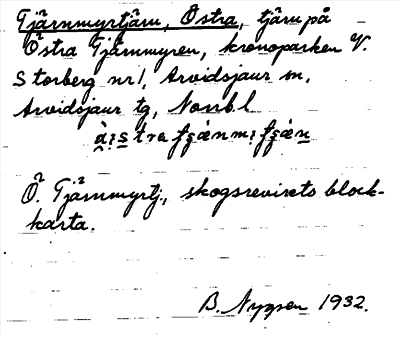 Tjärnmyrtjärn, Östra, tjärn på
Östra Tjärnmyren, kronoparken V.
Storberg nr 1, Arvidsjaur sn,
Arvidsjaur tg, Norrb. l
Ö. Tjärnmyrtj., skogsrevirets block-
karta.
B. Nygren 1932.